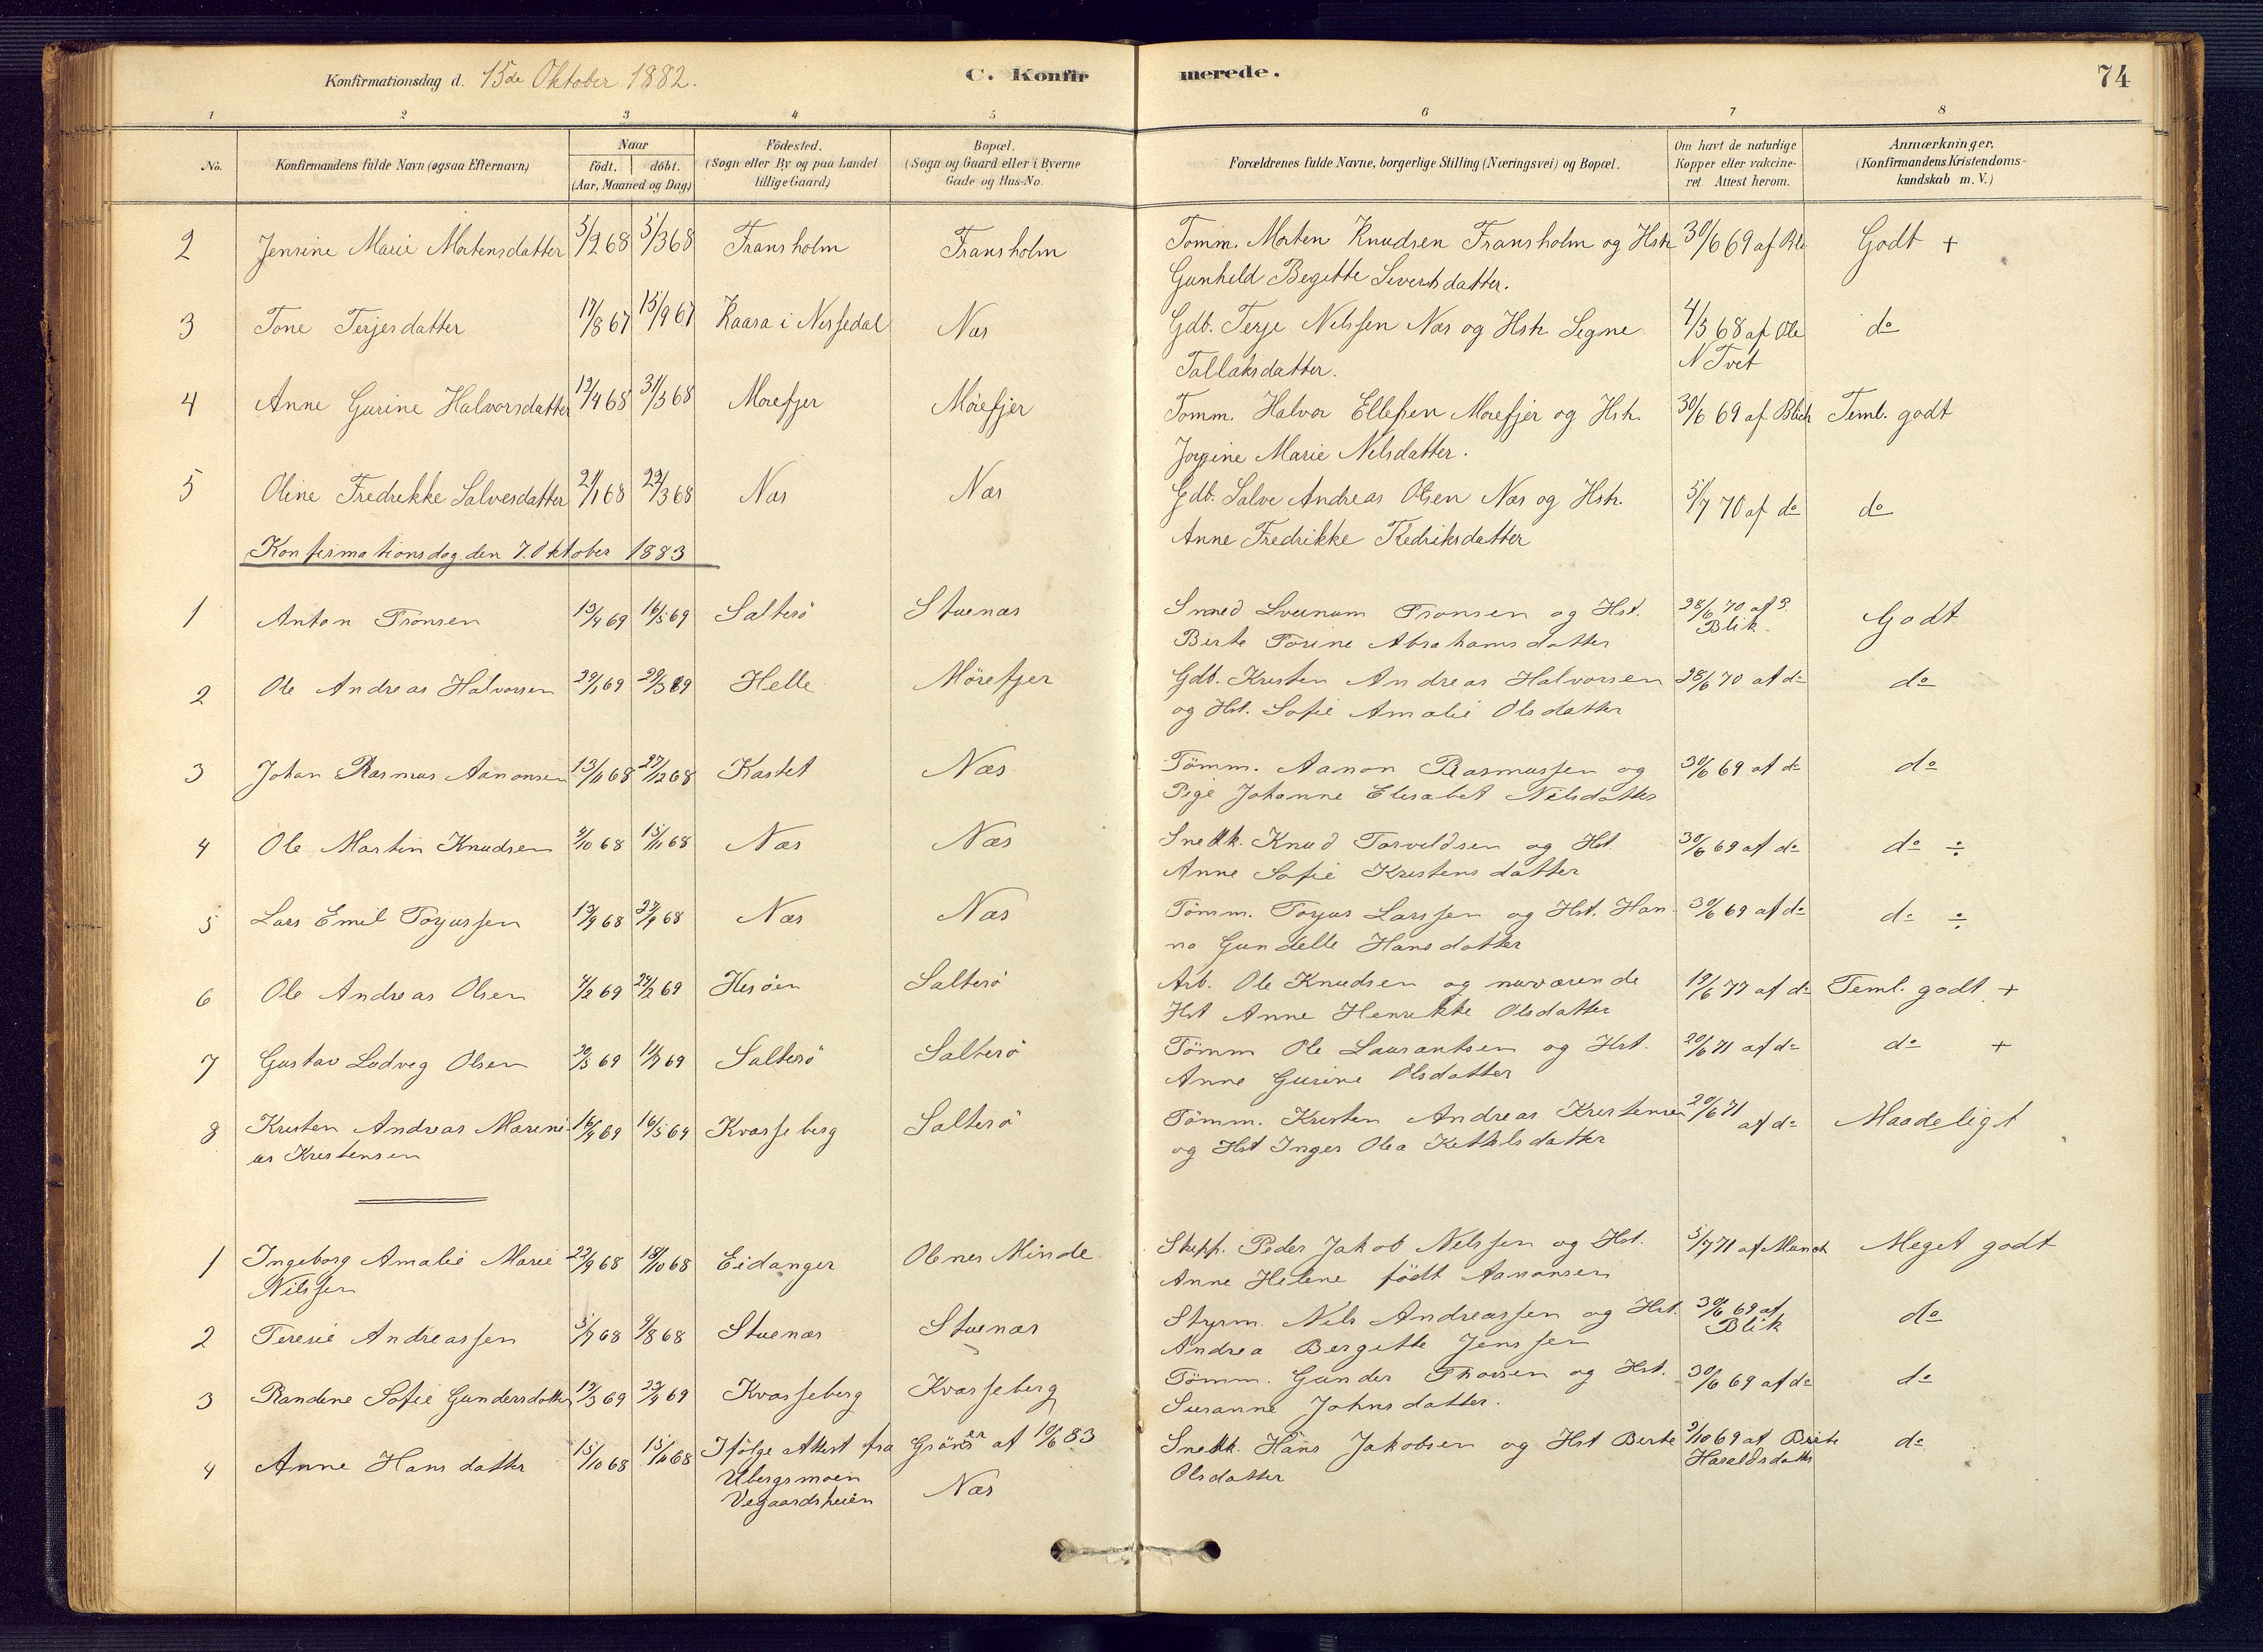 Konfirmationsdag d. 15de Oktober 1882.
C. Konfirmerede.
74
1 2 3 4 5 6 7 8
No.
Konfirmandens fulde Navn (ogsaa Efternavn)
Naar
födt. döbt.
(Aar, Maaned og Dag)
Födested.
(Sogn eller By og paa Landet
tillige Gaard)
Bopæl.
(Sogn og Gaard eller i Byerne
Gade og Hus-No.
Forældrenes fulde Navne, borgerlige Stilling (Næringsvei) og Bopæl.
Om havt de naturlige
Kopper eller vakcine-
ret. Attest herom.
Anmærkninger,
(Konfirmandens Kristendoms-
kundskab m. V.)
2 Jensine Marie Mortensdatter 5/2 68 5/3 68 Fransholm Fransholm Tomm. Morten Knudsen Fransholm og Hstr 30/6 69 af Godt +
Gunhild Begitte Sivertsdatter.
3 Tone Terjesdatter 17/8 67 15/9 67 Kaasa i Nissedal Næs Gdb. Terje Nilssen Næs og Hstr. Signe 4/3 68 af Ole do
Tallaksdatter. N Tvet
4 Anne Gurine Halvorsdatter 12/4 68 31/5 68 Morefjer Mörefjer Tomm. Halvor Ellefsen Morefjer og Hstr. 30/6 69 af Blich Teml. godt
Jorgine Marie Nilsdatter.
5 Oline Fredrikke Salvesdatter 21/1 68 22/3 68 Næs Næs Gdb. Salve Andreas Olsen Næs og Hstr. 5/7 70 af do do
Anne Fredrikke Fredriksdatter
Konfirmationsdag den 7. Oktober 1883
1 Anton Tronsen 13/4 69 16/5 69 Salterö Stuenæs Smed Sveinum Tronsen og Hst. 28/6 70 af P. Godt
Berte Torine Abrahamsdatter Blik
2 Ole Andreas Halvorsen 29/1 69 29/3 69 Helle Mörefjer Gdb. Kristen Andreas Halvorsen 28/6 70 af do do
og Hst. Sofie Amalie Olsdatter
3 Johan Rasmus Aanonsen 13/11 68 27/12 68 Kastet Næs Tömm. Aanon Rasmussen og 30/6 69 af do do
Pige Johanne Elisabet Nilsdatter
4 Ole Martin Knudsen 2/10 68 15/11 68 Næs Næs Snekk. Knud Torveldsen og Hst. 30/6 69 af do do ÷
Anne Sofie Kristensdatter
5 Lars Emil Torjussen 12/9 68 27/9 68 Næs Næs Tömm. Torjus Larssen og Hst. Han- 30/6 69 af do do ÷
na Gundelle Hansdatter
6 Ole Andreas Olsen 4/2 69 28/2 69 Hisöen Salterö Arb. Ole Knudsen og nuværende 19/6 77 af do Teml. godt +
Hst Anne Henrikke Olsdatter
7 Gustav Ludvig Olsen 20/5 69 11/7 69 Salterö Salterö Tömm Ole Laurantsen og Hst. 20/6 71 af do do +
Anne Gurine Olsdatter
8 Kristen Andreas Marini- 16/4 69 16/5 69 Kvasseberg Salterö Tömm. Kristen Andreas Kristensen 20/6 71 af do Maadeligt
us Kristensen og Hst Inger Olea Kettilsdatter
1 Ingeborg Amalie Marie 22/9 68 18/10 68 Eidanger Olenes Minde Skipp. Peder Jakob Nilssen og Hst. 5/7 71 af Munch Meget godt
Nilssen Anne Helene födt Aanonsen
2 Teresie Andreassen 5/7 68 9/8 68 Stuenæs Stuenæs Styrm. Nils Andreassen og Hst. 30/6 69 af do
Andrea Bergitte Jenssen Blik
3 Randine Sofie Gundersdatter 12/3 69 22/4 69 Kvasseberg Kvasseberg Tömm. Gunder Thorsen og Hst. 30/6 69 af do do
Susanne Johnsdatter.
4 Anne Hansdatter 15/10 68 15/11 68 Ifölge Attest fra Gröner af 10/6 83 Snekk. Hans Jakobsen og Hst Berte 2/10 69 af Berte do
Ubergsmoen Olsdatter Haraldsdatter
Vegaardsheien Næs